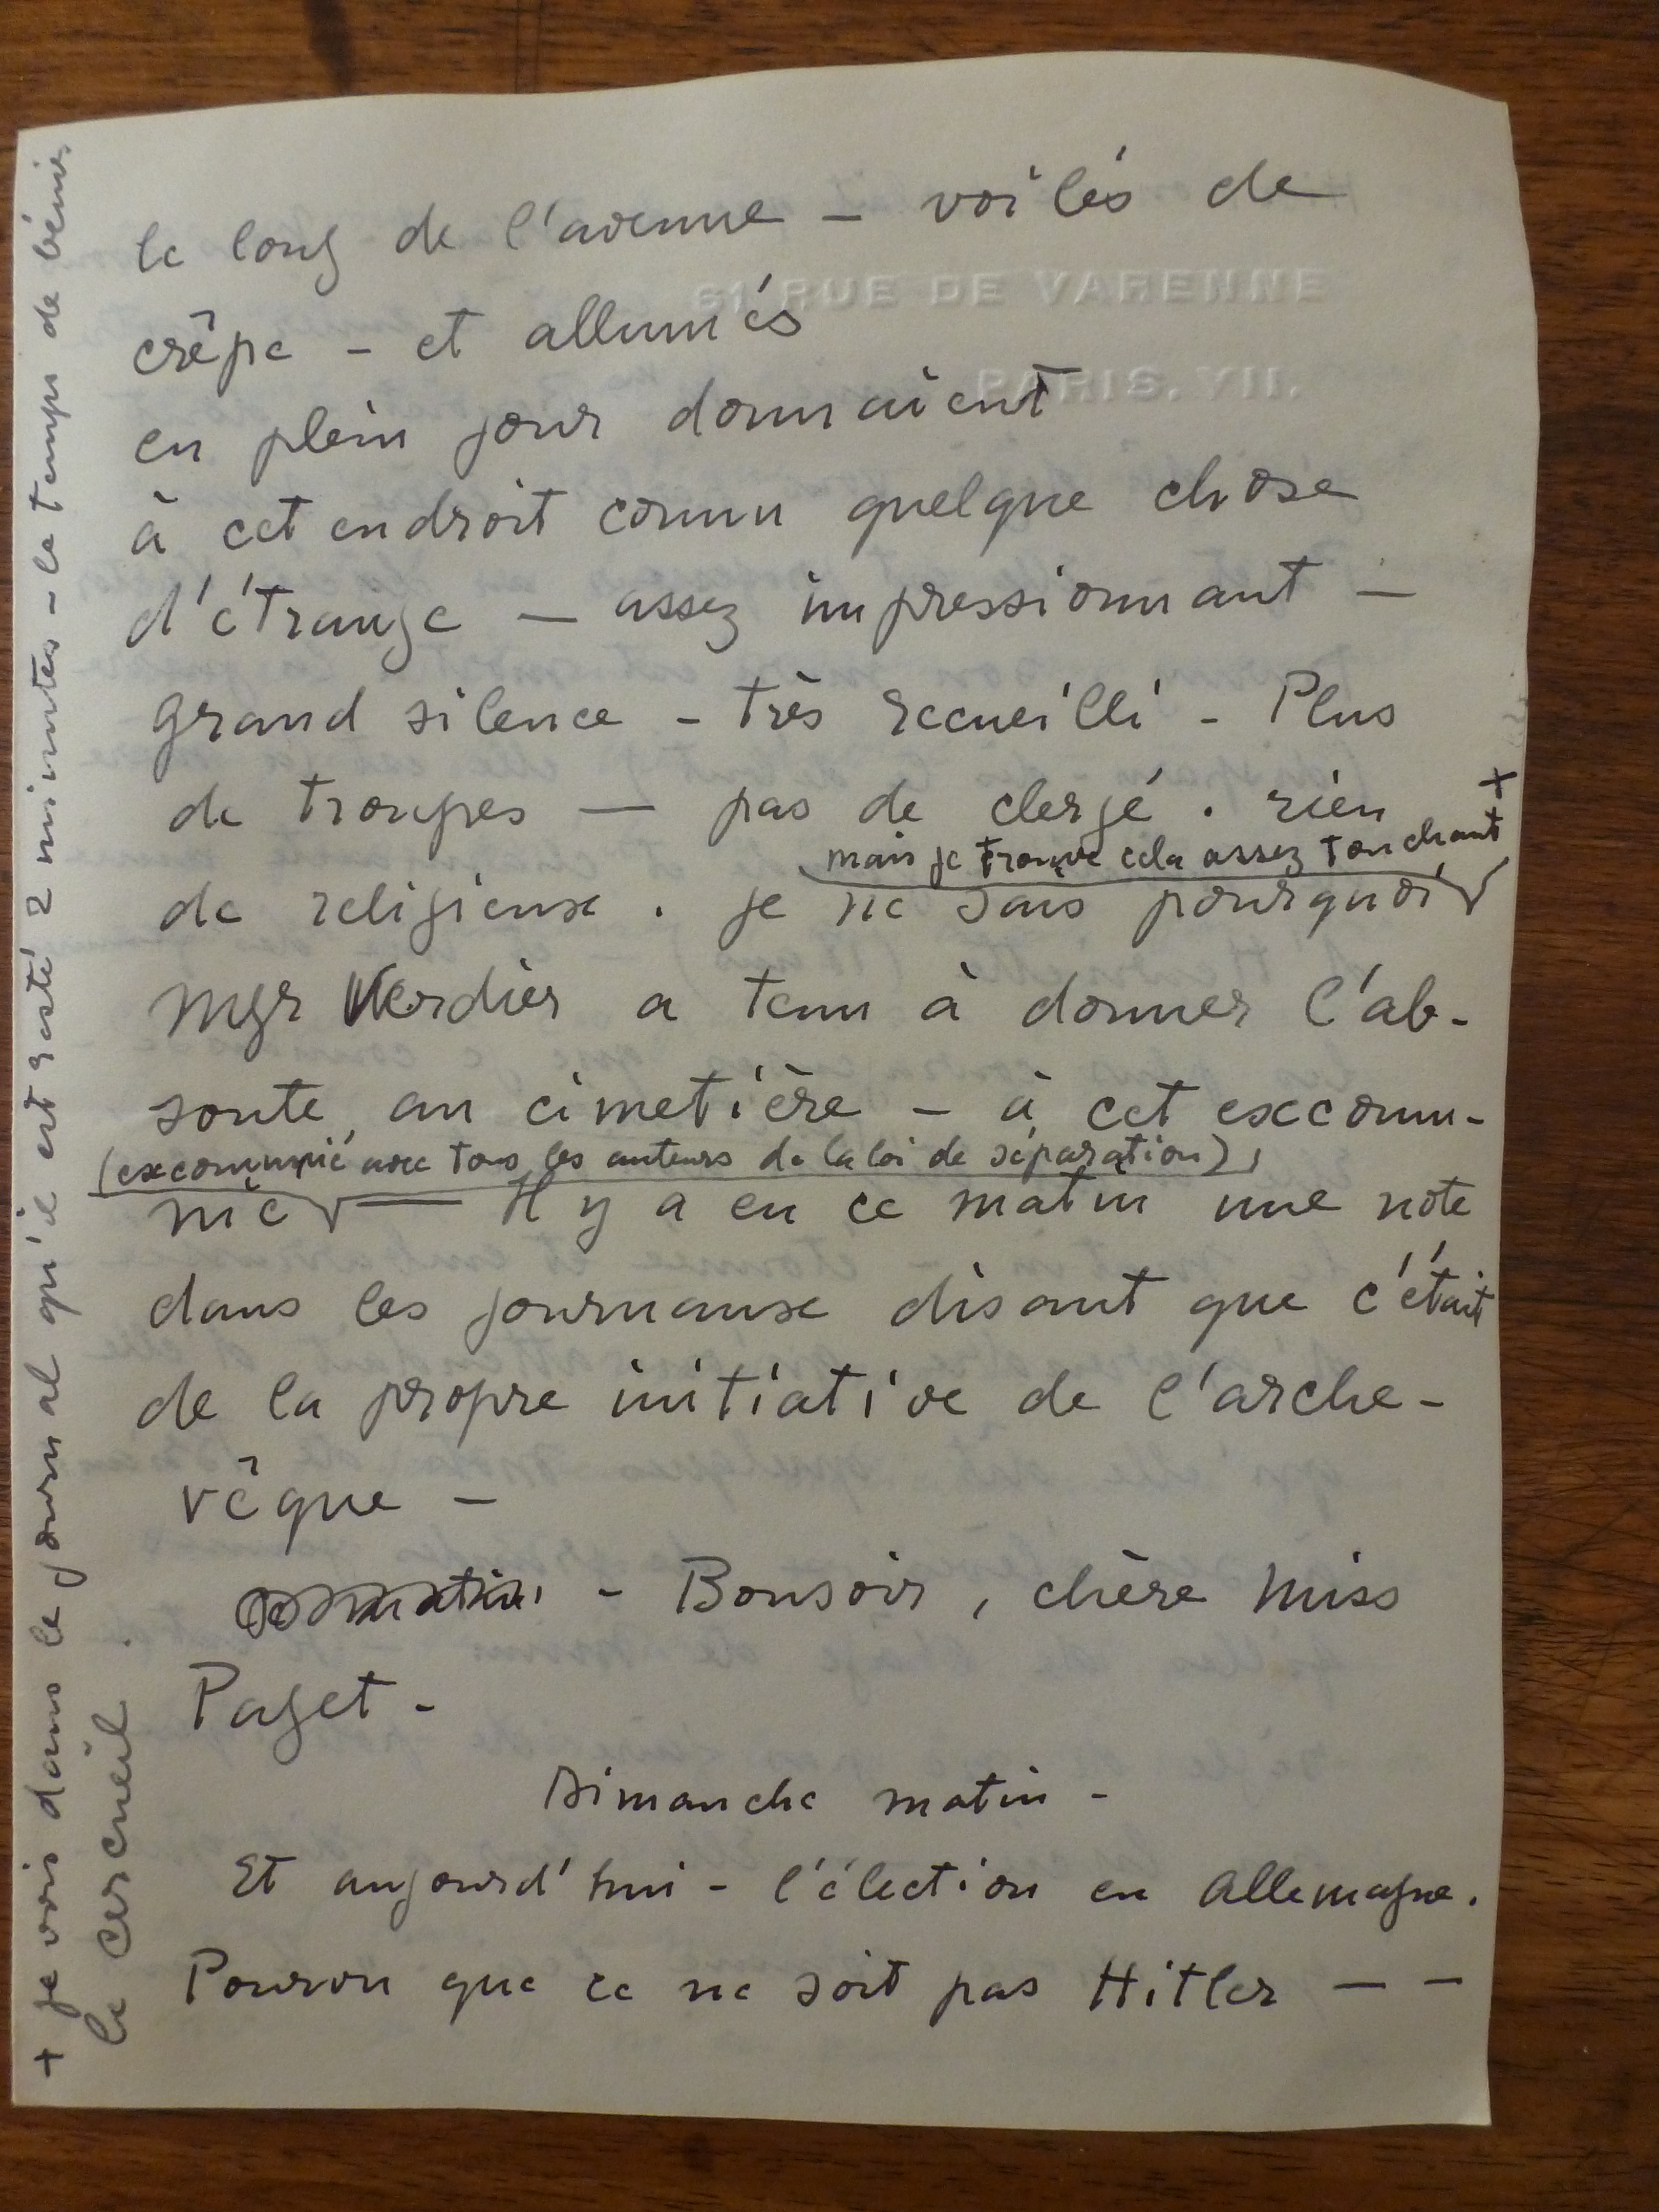 61 RUE DE VARENNE
PARIS. VII.
le long de l'avenue – voilés de
crêpe – et allumés
en plein jour donnaient
à cet endroit connu quelque chose
d'étrange — assez impressionnant —
grand silence – très recueilli – Plus
de troupes — pas de clergé . rien +
mais je trouve cela assez touchant
de religieux . je ne sais pourquoi
Mgr Verdier a tenu à donner l'ab-
soute au cimetière – à cet excommu-
(excommunié avec tous les auteurs de la loi de séparation),
nié — Il y a eu ce matin une note
dans les journaux disant que c'était
de la propre initiative de l'arche-
vêque –
– Bonsoir, chère Miss
Paget –
Dimanche matin –
Et aujourd'hui – l'élection en Allemagne.
Pourvu que ce ne soit pas Hitler — —
+ je vois dans le journal qu'il est resté 2 minutes – le temps de bénir
le cercueil .